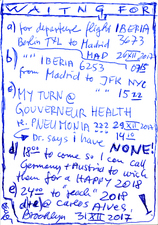 WAITNG FOR
a) for departure flight IBERIA
Berlin TXL to Madrid 3673
b) " " IBERIA MAD 26 XII 2017
6253
from Madrid to JFK NYC
c) MY TURN @ " " 1522
GOUVERNEUR HEALTH
re. PNEUMONIA 222 29 XII 2017
→ Dr. says i have NONE!
d) 18:00 to come so I can call
Germany + Austria to wish
them for a HAPPY 2018
e) 24:00 to "reach" 2018
@ carles ALVES
Brooklyn 31 XII 2017